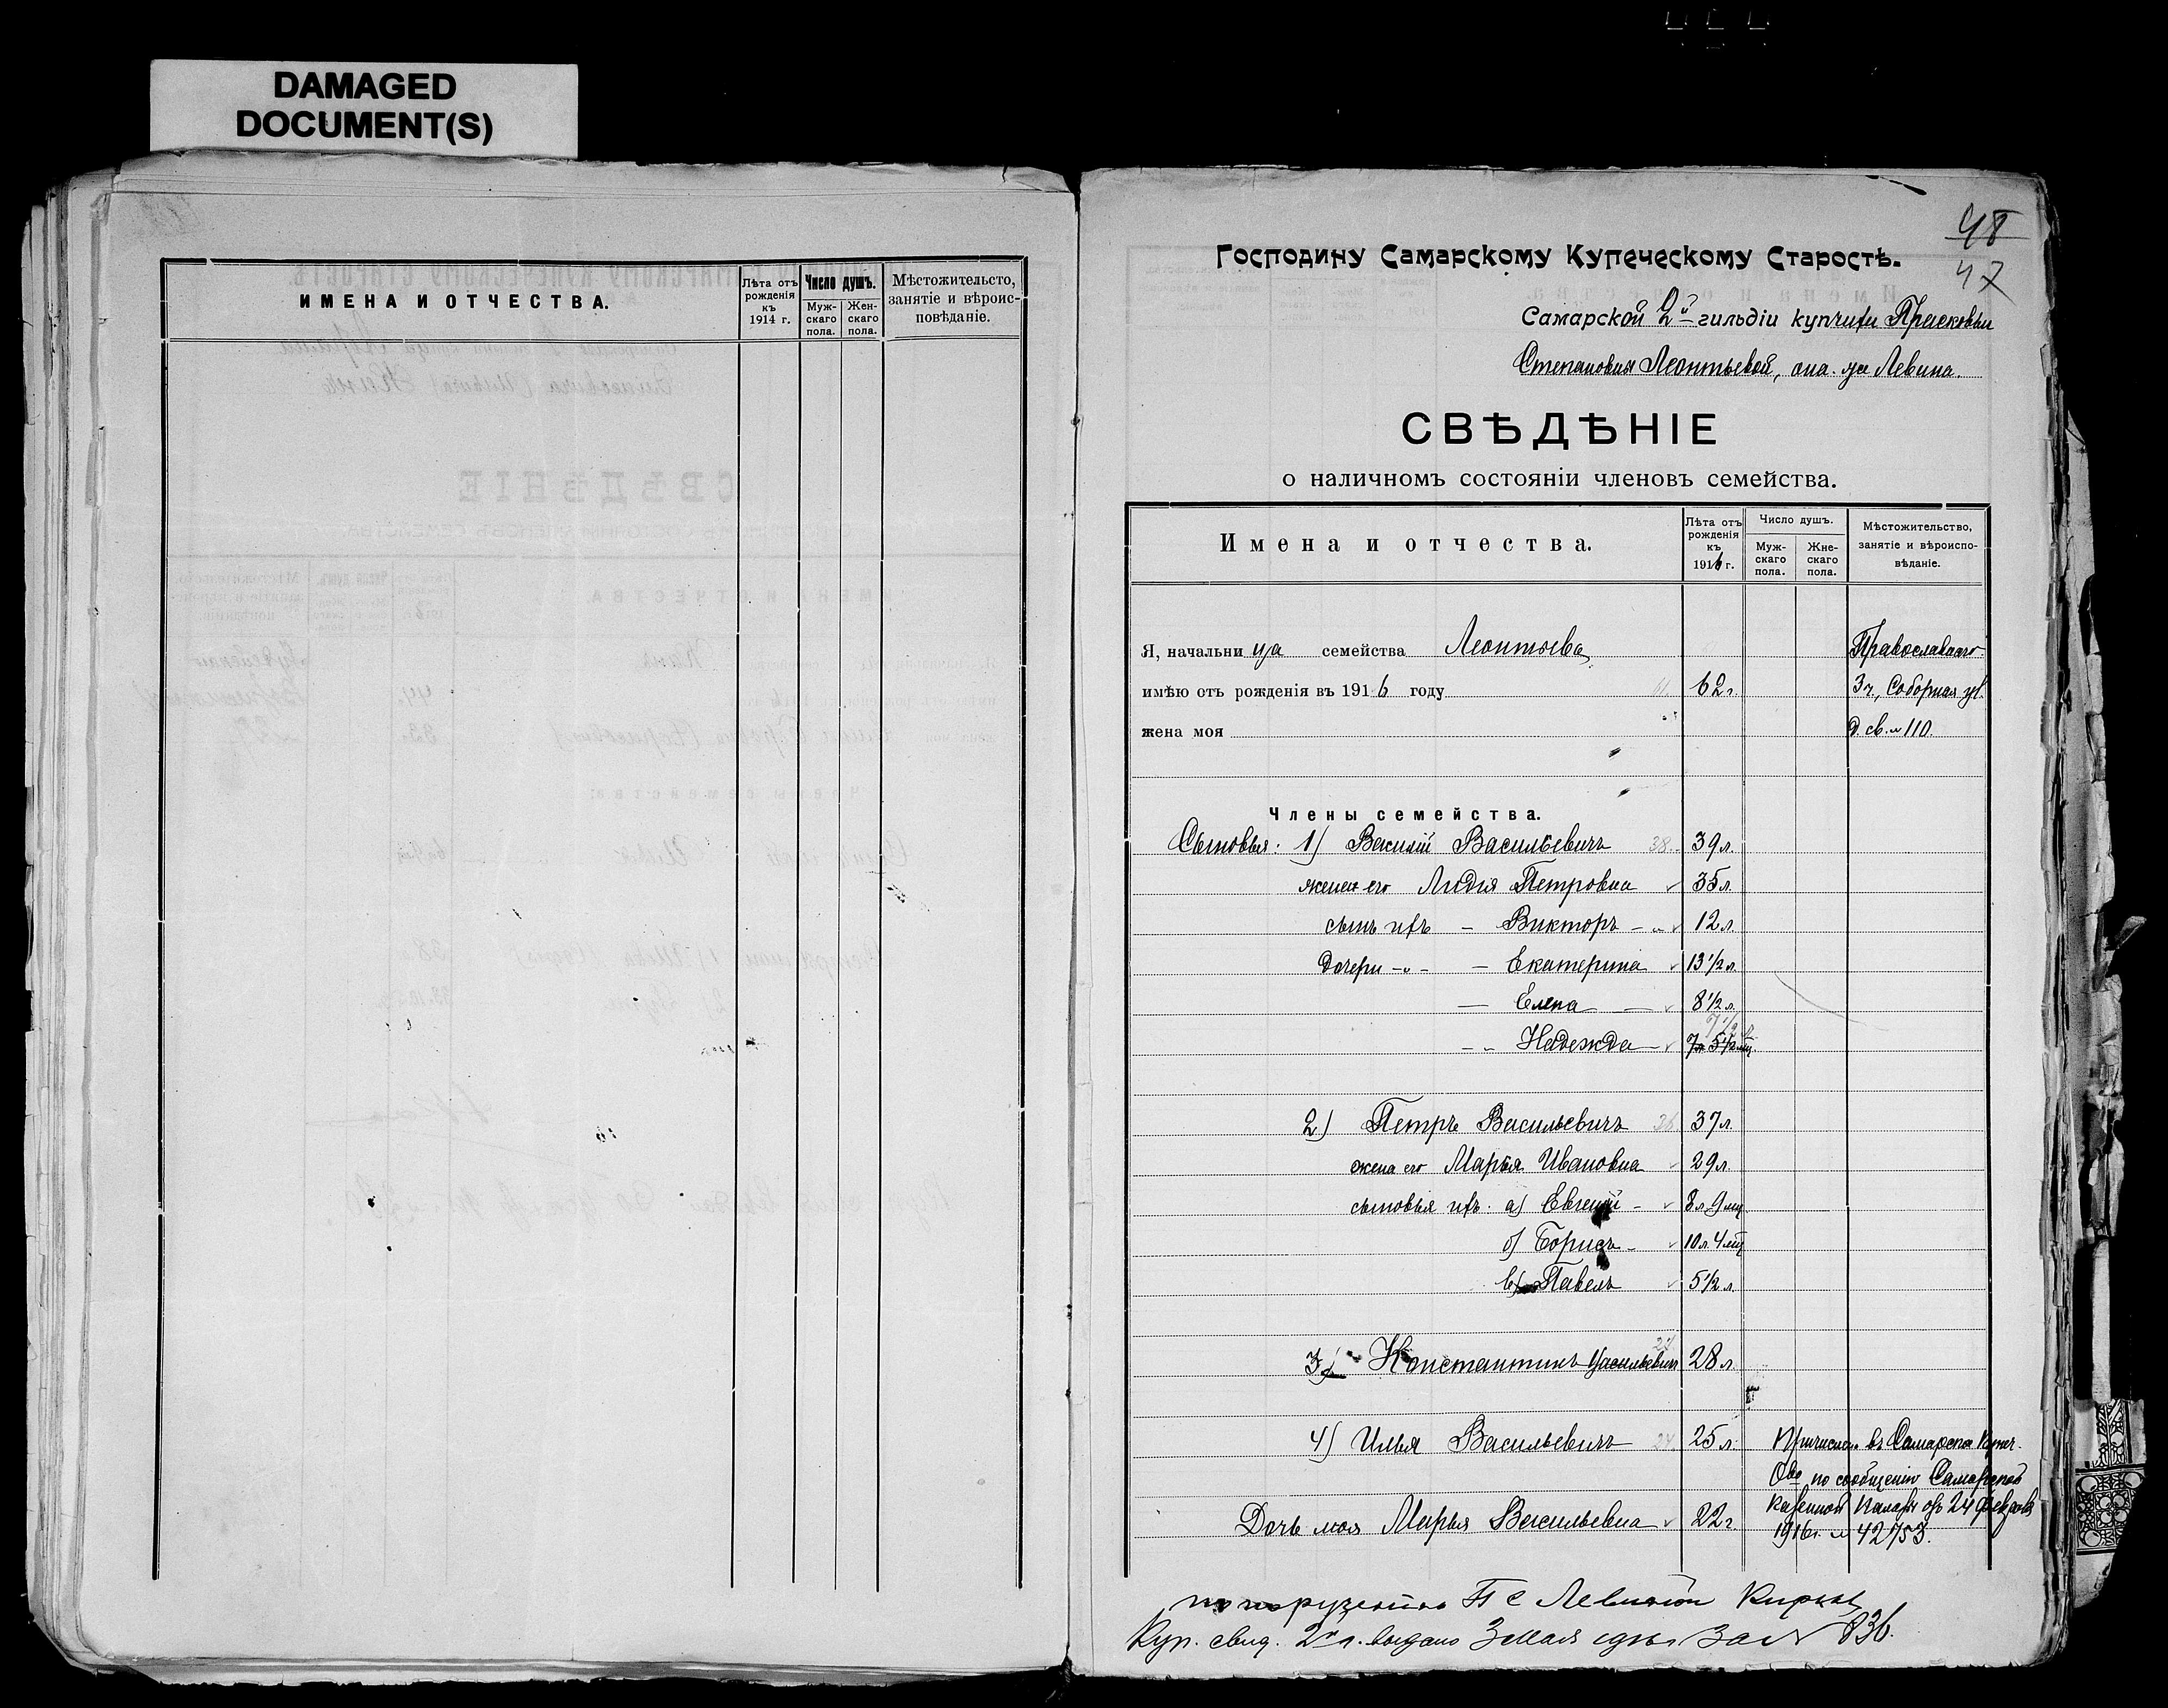 DAMAGED
DOCUMENT(S)
ИМЕНА И ОТЧЕСТВА.
Лѣта отъ рожденія къ 1914 г.
Число душъ.
Муж-скаго пола.
Жен-скаго пола.
Мѣстожительсто, занятіе и вѣроис-повѣданіе.
48
47
Господину Самарскому Купеческому Старостѣ.
Самарской 2й гильдіи купчихи Прасковьи
Степановны Леонтьевой, она-же Левина.
СВѢДѢНІЕ
о наличномъ состояніи членовъ семейства.
Имена и отчества.
Лѣта отъ рожденія къ 1916 г.
Число душъ.
Муж-скаго пола.
Жне-скаго пола.
Мѣстожительство, занятіе и вѣроиспо-вѣданіе.
Я, начальница семейства Леонтьева Православнаго
имѣю отъ рожденія въ 1916 году 62г. 3ч., Соборная ул.
жена моя д. св. № 110.
Члены семейства.
Сыновья: 1) Василій Васильевичъ 38 39л.
жена его Лидія Петровна 35л.
сынъ ихъ – Викторъ – 12л.
дочери -"- – Екатерина 13½л.
— Елена — 8½л.
7½ л
-- Надежда 7л 5½мц.
2) Петръ Васильевичъ 36 37л.
жена его Марья Ивановна 29л.
сыновья ихъ. а) Евгеній – 8л. 9мц
б) Борисъ – 10л. 4мц
в) Павелъ 5½л.
3) Константинъ Васильевич 27 28л.
4) Илья Васильевичъ 24 25л. Причислен. въ Самарск. Купеч.
Ово по сообщенію Самарской
Казенной Палаты отъ 24 февраля
Дочь моя Марья Васильевна 22г. 1916г. № 42753.
по порученію П С Левиной
Куп. свид. 2й г. выдано 3 мая за № 836.